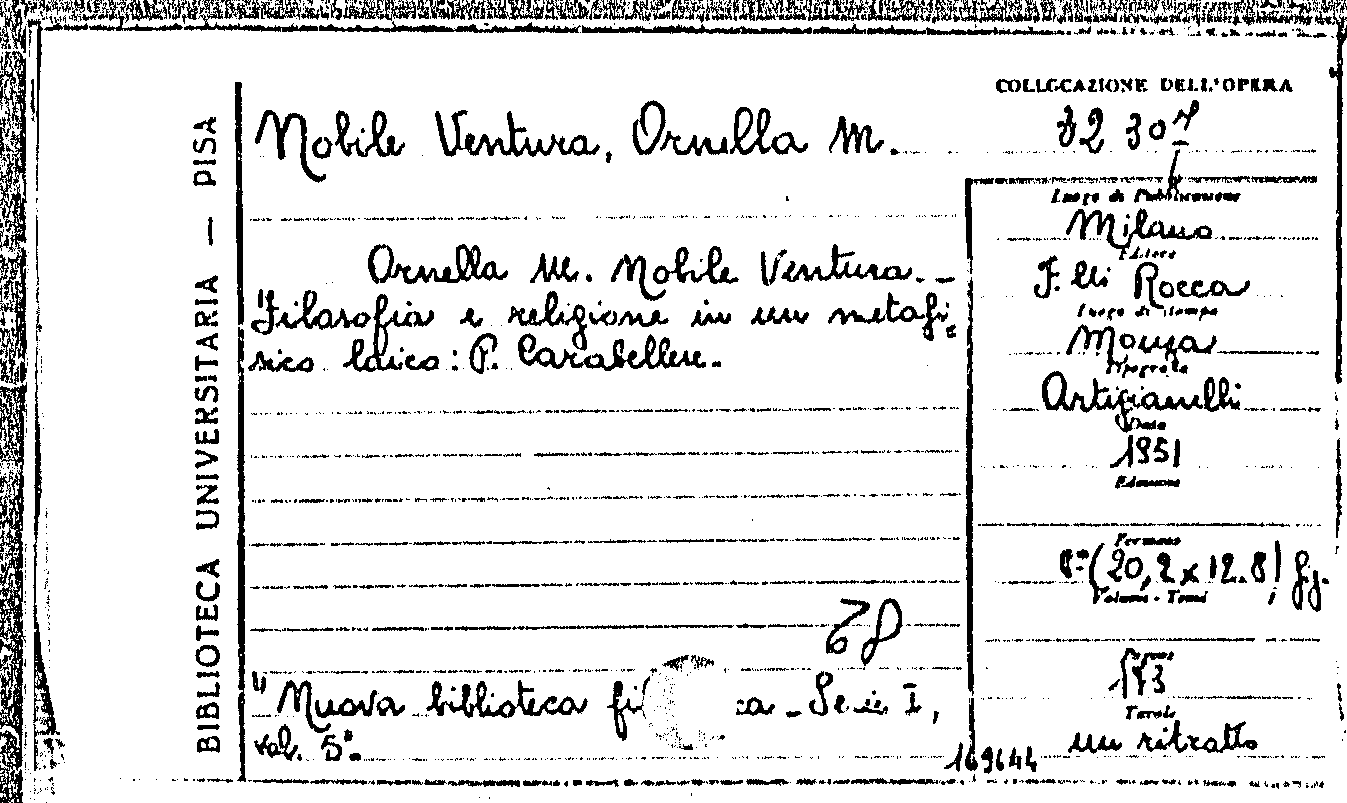 BIBLIOTECA UNIVERSITARIA — PISA
COLLOCAZIONE DELL'OPERA
Nobile Ventura, Ornella M.
Ornella M. Nobile Ventura. –
"Filosofia e religione in un metafi-
sico laico: P. Carabellese.
"Nuova biblioteca
Serie I,
vol. 5°.
Luogo di Pubblicazione
Milano
Editore
F.lli Rocca
Luogo di stampa
Monza
Tipografia
Artigianelli
Data
1951
Edizione
Formato
8°(20,2 x 12.8)
Volumi - Tomi
Pagine
173
Tavole
un ritratto
169644